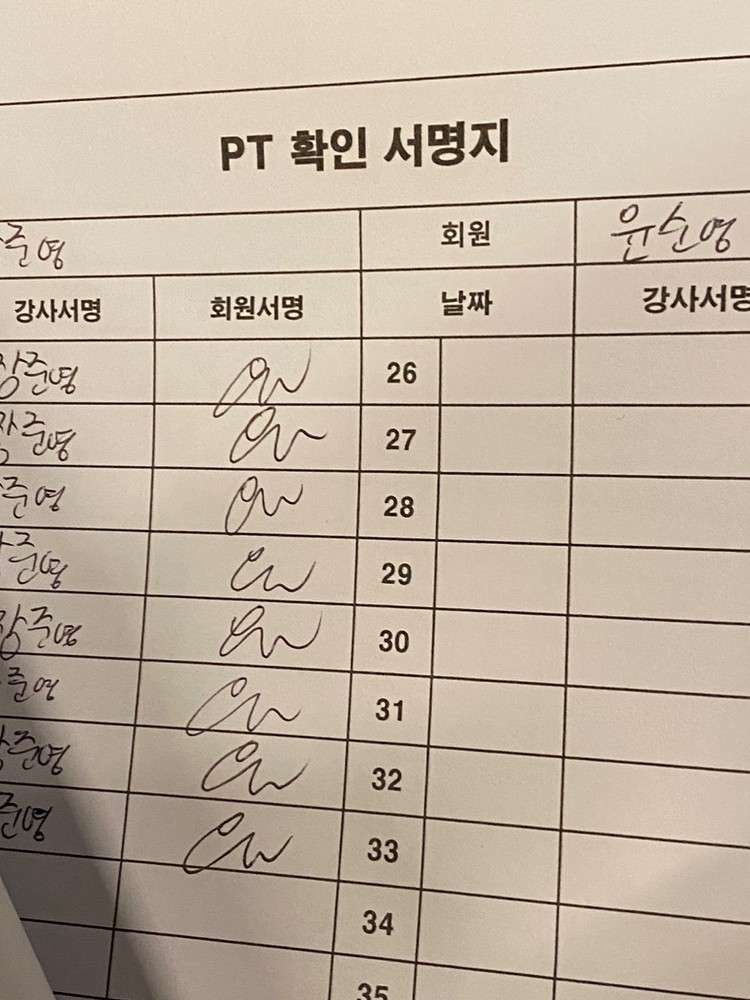 PT 확인 서명지
준영 회원 윤순영
강사서명 회원서명 날짜 강사서명
장준영 26
장준영 27
준영 28
장준영 29
장준영 30
준영 31
장준영 32
준영 33
34
35